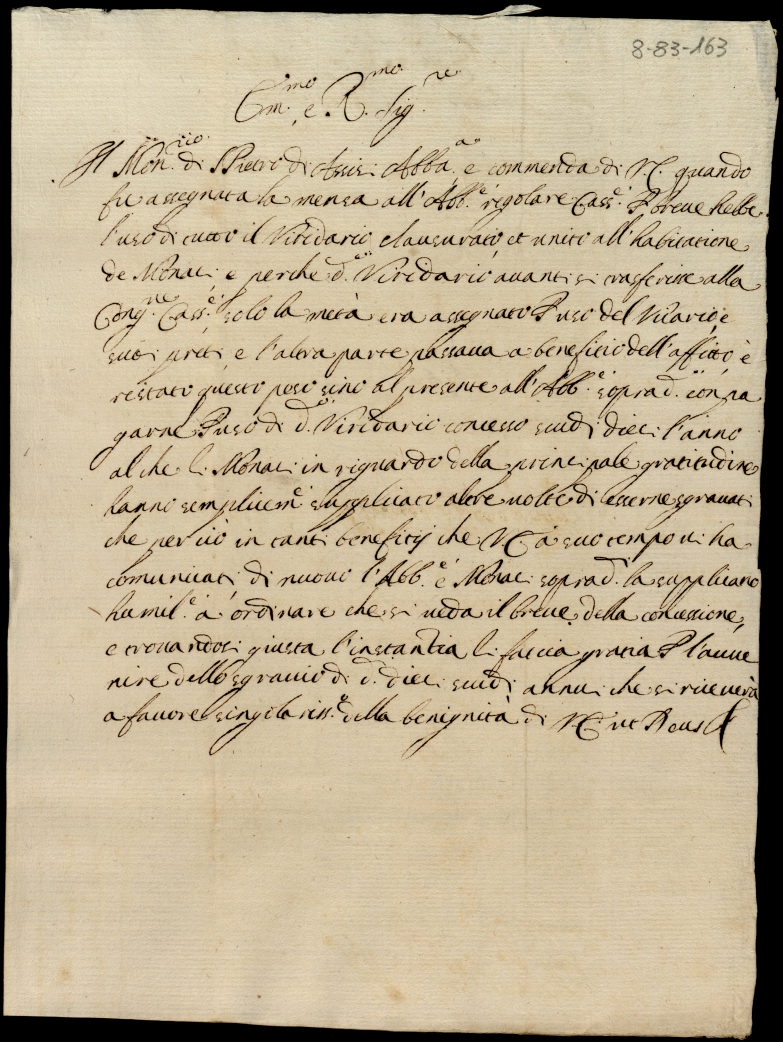 8-83-163
Em.mo e R.mo Sig.re
Il Mon.rio di S Pietro di Assisi Abba.a e commenda di V.E. quando
fu assegnata la mensa all'Abb.e regolare Cass.e P breve hebbe
l'uso di tutto il Viridario clausurato et unito all'habitatione
de Monaci e perche d.o Viridario avanti si trasferisse alla
Cong.ne Cass.e solo la metà era assegnato P uso del Vicario e
suoi preti e l'altra parte passava a beneficio dell'affitto, è
restato questo peso sino al presente all'Abb.e soprad.o con pa
garne P uso di d.o Viridario concesso scudi dieci l'anno
al che li Monaci in riguardo della principale gratitudine
hanno semplicem.e supplicato altre volte di esserne sgravati
che perciò in tanti beneficij che V.E. à suo tempo vi ha
comunicati di nuovo l'Abb.e e Monaci soprad.i la supplicano
humil.e à ordinare che si veda il breve della concessione,
e trovandosi giusta l'instantia li faccia gratia P l'avve
nire dello sgravio di d.i dieci scudi annui che si riceverà
a favore singolariss.o della benignità di V.E. ut Deus